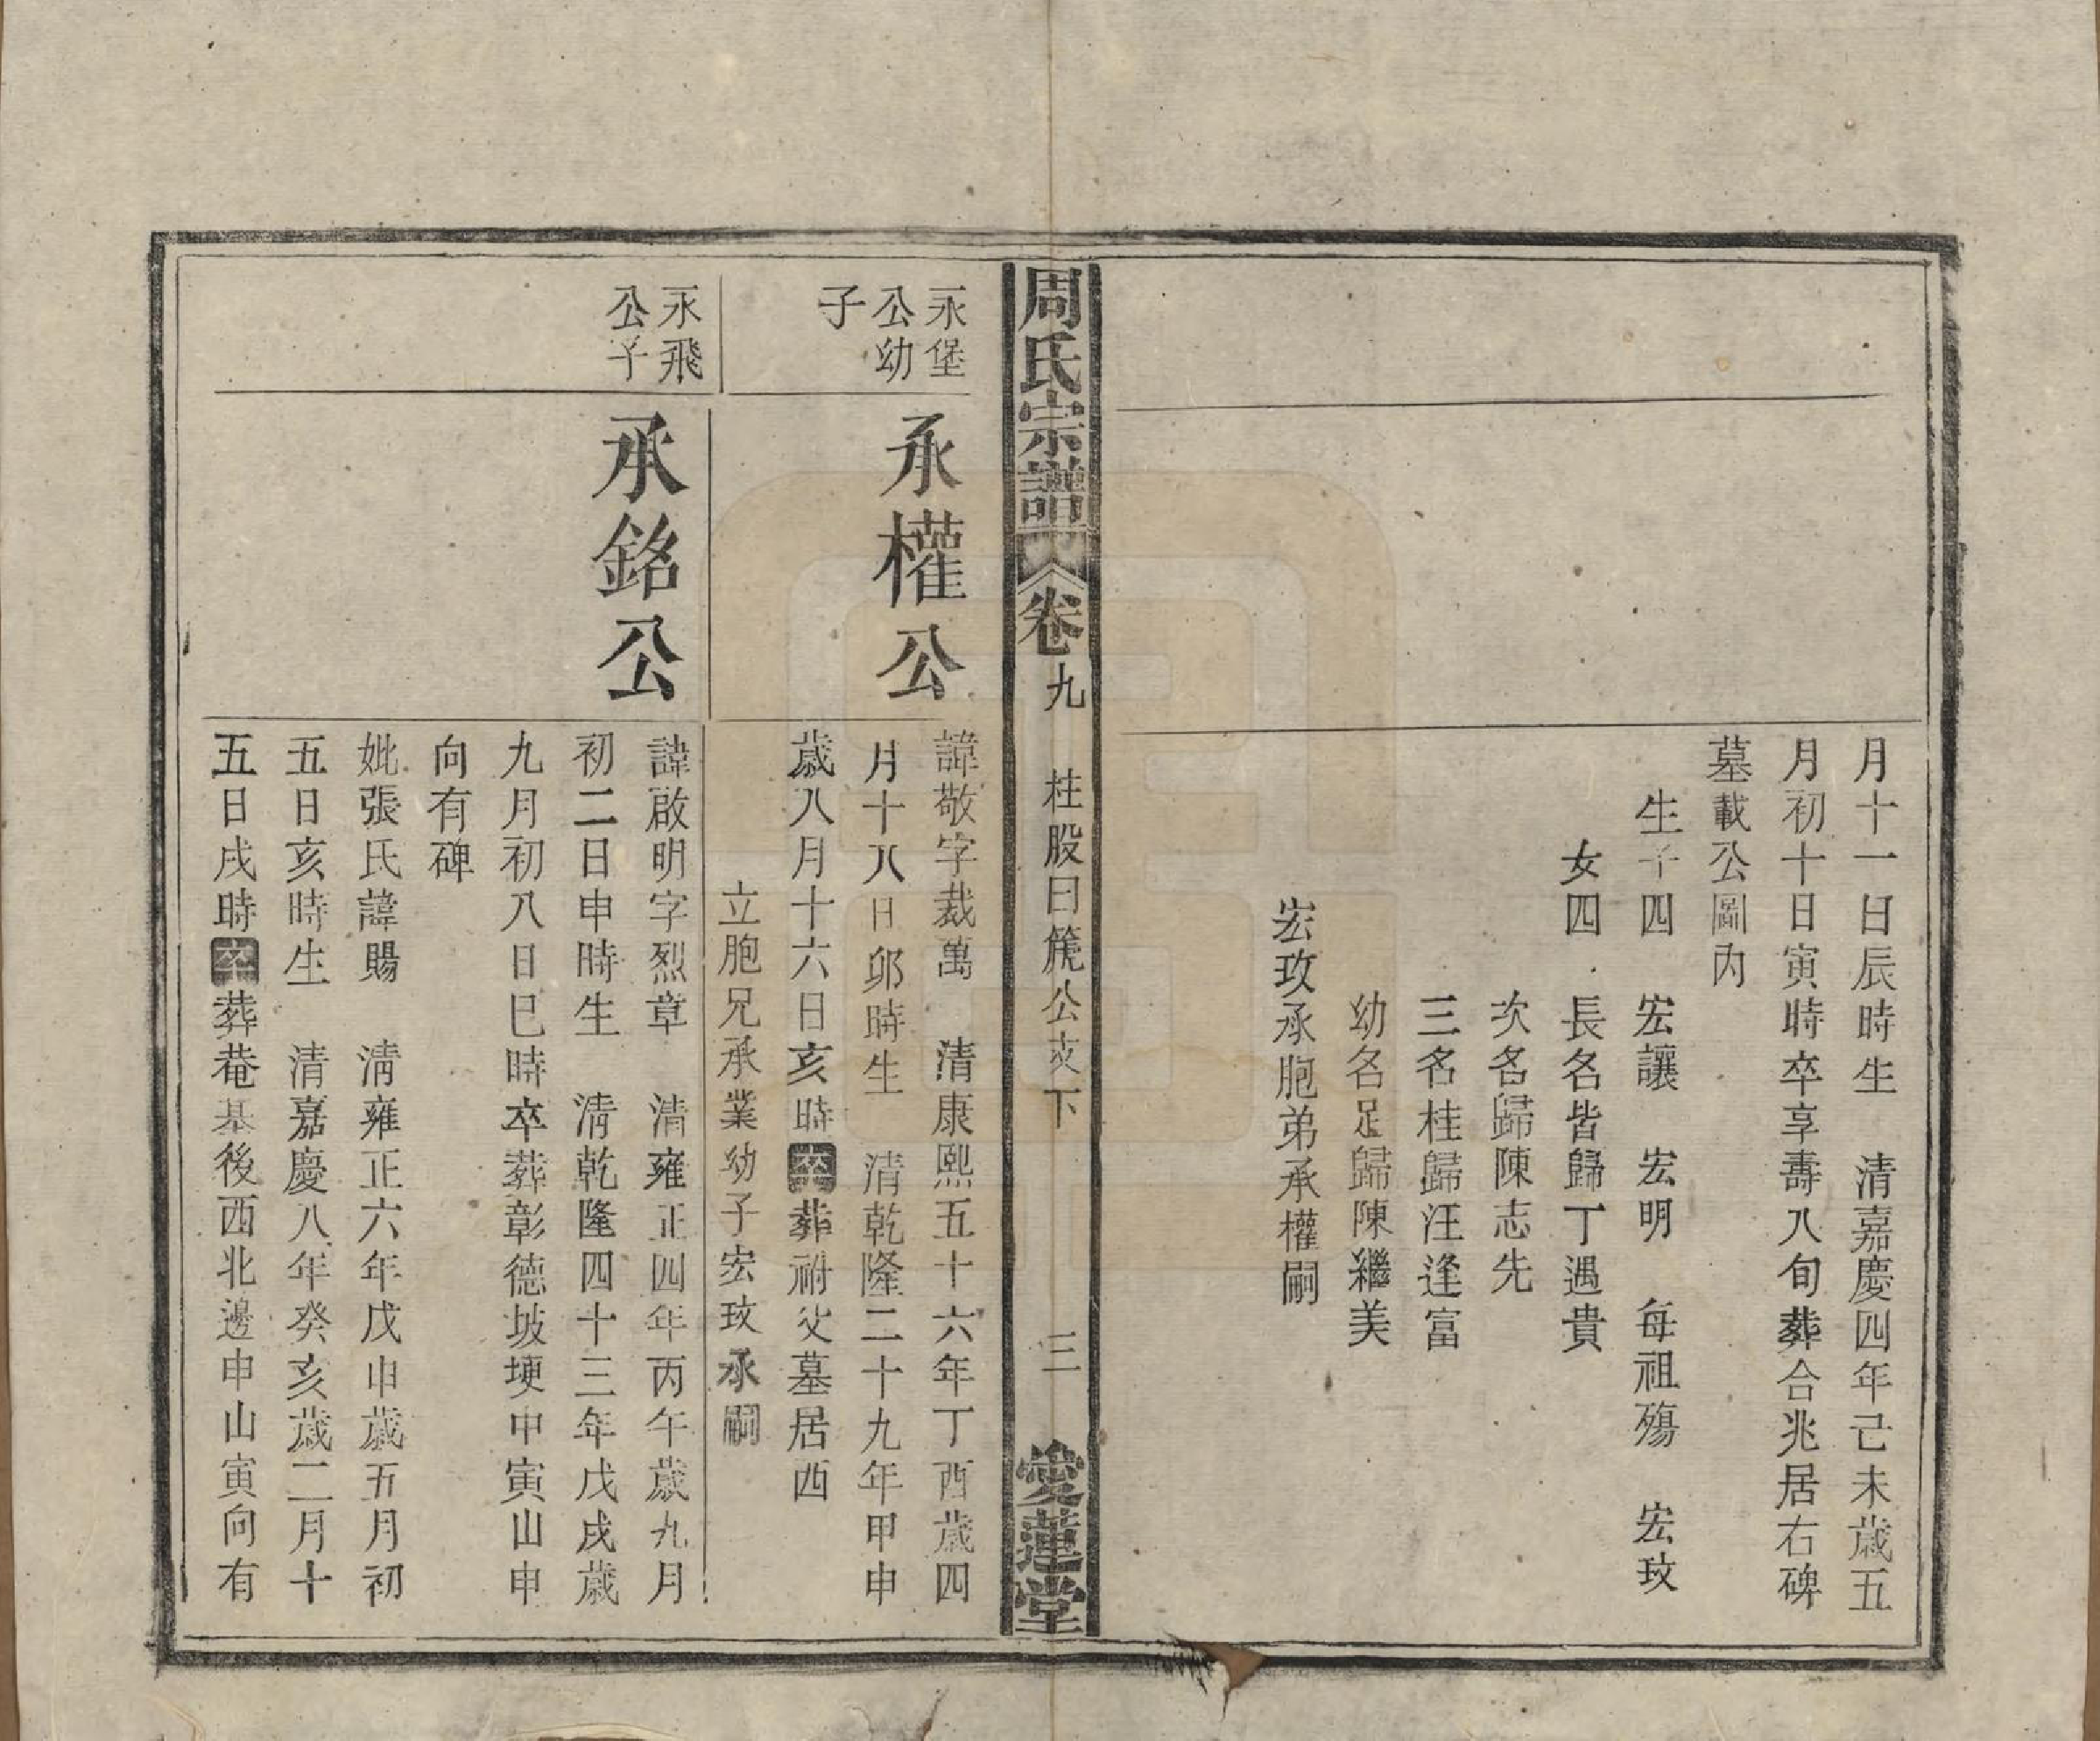 月十一日辰時生　清嘉慶四年己未歲五
月初十日寅時卒享壽八旬葬合兆居右碑
墓載公圖內
生子四　宏讓　宏明　每祖殤　宏玫
女四　長名皆歸丁遇貴
次名歸陳志先
三名桂歸汪逢富
幼名足歸陳繼美
宏玫承胞弟承權嗣
周氏宗譜　卷九　柱股曰篪公支下　三　愛蓮堂
永堡
公幼
子
承權公
諱敬字裁萬　清康熙五十六年丁酉歲四
月十八日卯時生　清乾隆二十九年甲申
歲八月十六日亥時卒葬祔父墓居西
立胞兄承業幼子宏玫承嗣
永飛
公子
承銘公
諱啟明字烈章　清雍正四年丙午歲九月
初二日申時生　清乾隆四十三年戊戌歲
九月初八日巳時卒葬彰德坡埂中寅山申
向有碑
妣張氏諱賜　清雍正六年戊申歲五月初
五日亥時生　清嘉慶八年癸亥歲二月十
五日戌時卒葬菴基後西北邊申山寅向有